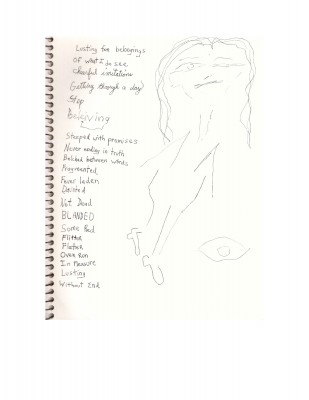 Lusting for belongings
of what I do see
Cheerful invitations
Getting through a day
Stop
Beleiving
Steeped with promises
Never ending in truth
Belched between words
Fragmented
Fever laden
Deisted
Not Dead
BLANDED
Some Bad
Flitter
Flatter
Over Run
In Measure
Lusting
Without End